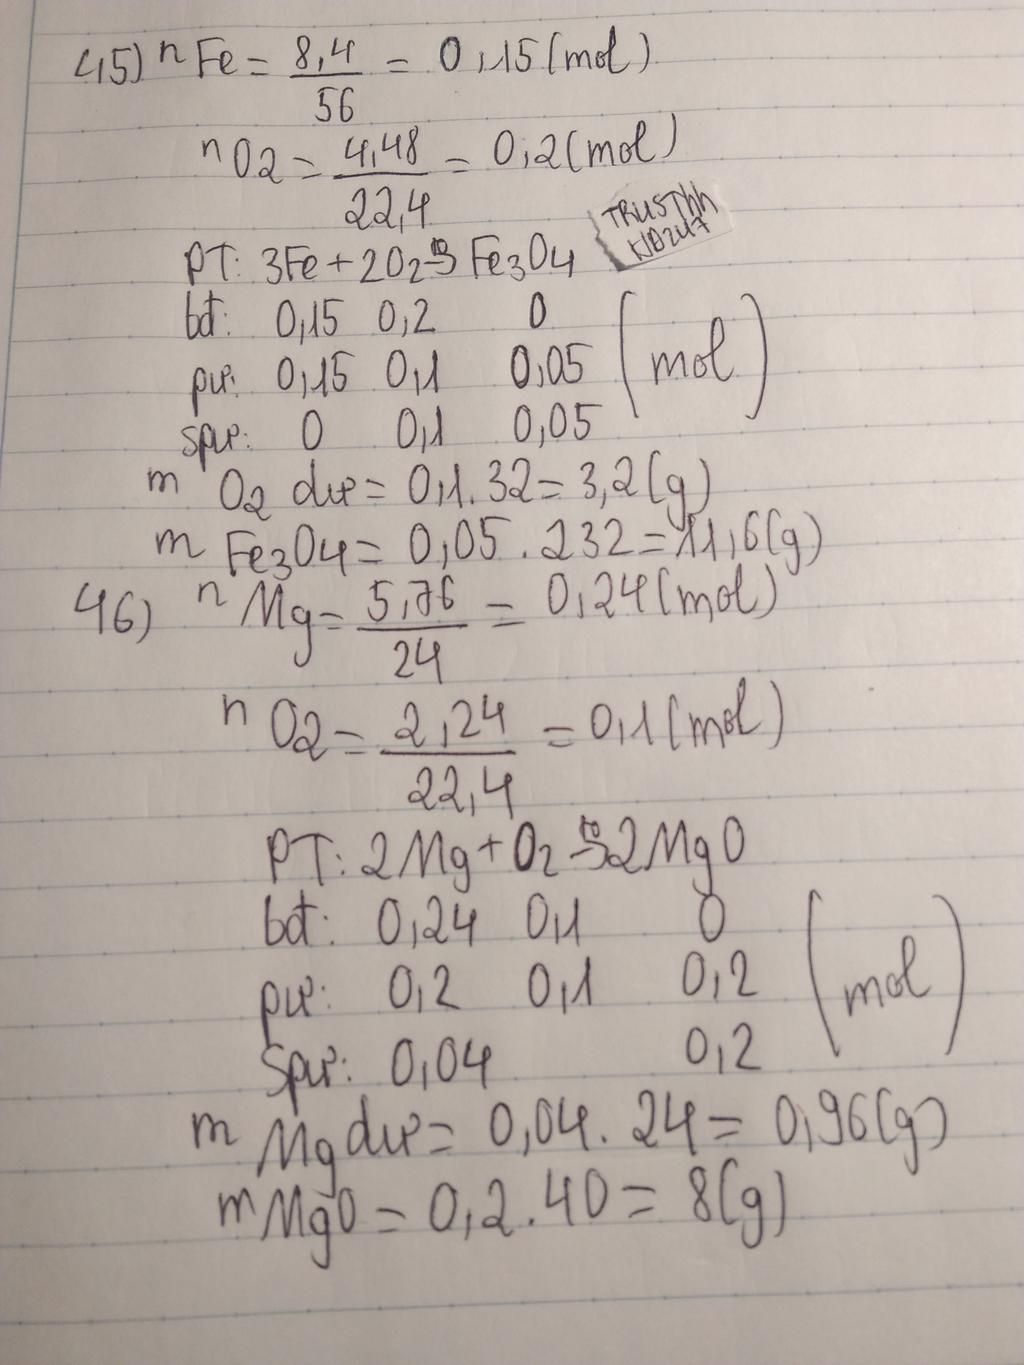 45) nFe = 8,4/56 = 0,15 (mol)
nO2 = 4,48/22,4 = 0,2 (mol)
TRUSThh
KID247
PT: 3Fe + 2O2 →t° Fe3O4
bđ: 0,15 0,2 0
pư: 0,15 0,1 0,05 (mol)
spư: 0 0,1 0,05
m O2 dư = 0,1 . 32 = 3,2 (g)
m Fe3O4 = 0,05 . 232 = 11,6 (g)
46) nMg = 5,76/24 = 0,24 (mol)
nO2 = 2,24/22,4 = 0,1 (mol)
PT: 2Mg + O2 →t° 2MgO
bđ: 0,24 0,1 0
pư: 0,2 0,1 0,2 (mol)
spư: 0,04 0,2
m Mg dư = 0,04 . 24 = 0,96 (g)
mMgO = 0,2 . 40 = 8 (g)